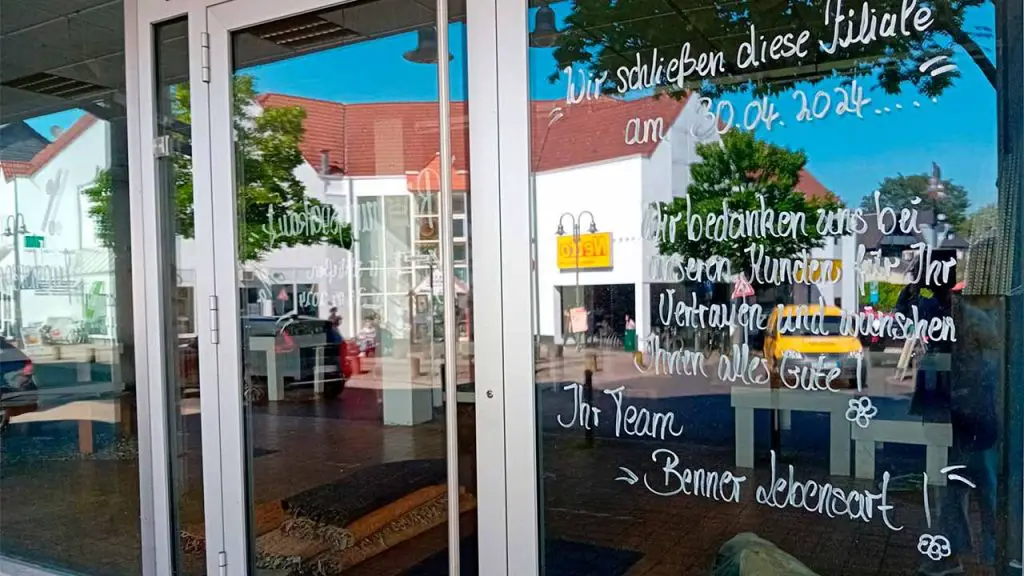 Wir schließen diese Filiale
am 30.04.2024.....
Wir bedanken uns bei
unseren Kunden für Ihr
Vertrauen und wünschen
Ihnen alles Gute!
Ihr Team
Benner Lebensart!
Netto